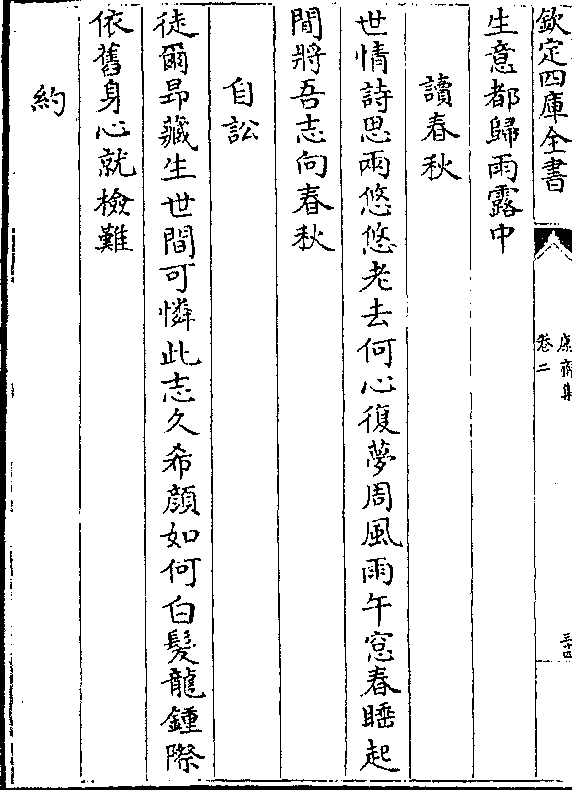 欽定四庫全書
康齋集
卷二
三十四
生意都歸雨露中
讀春秋
世情詩思兩悠悠老去何心復夢周風雨午窓春睡起
間將吾志向春秋
自訟
徒爾昂藏生世間可憐此志久希顔如何白髮龍鍾際
依舊身心就檢難
約